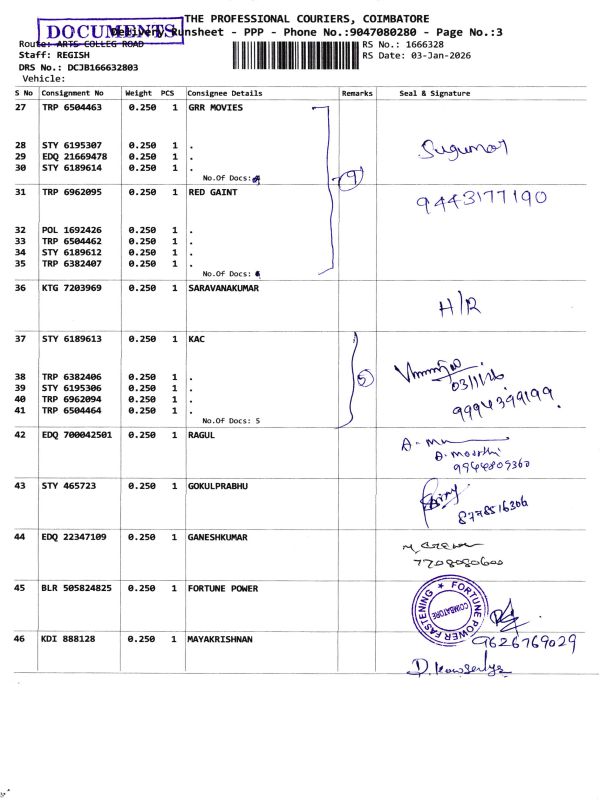 THE PROFESSIONAL COURIERS, COIMBATORE
DOCUMENTS
Delivery Runsheet - PPP - Phone No.:9047080280 - Page No.:3
Route: ARTS COLLEG ROAD
RS No.: 1666328
Staff: REGISH
RS Date: 03-Jan-2026
DRS No.: DCJB166632803
Vehicle:
S No Consignment No Weight PCS Consignee Details Remarks Seal & Signature
27 TRP 6504463 0.250 1 GRR MOVIES
28 STY 6195307 0.250 1 .
Sugumar
29 EDQ 21669478 0.250 1 .
30 STY 6189614 0.250 1 .
No.Of Docs: 4
9
31 TRP 6962095 0.250 1 RED GAINT
9443177190
32 POL 1692426 0.250 1 .
33 TRP 6504462 0.250 1 .
34 STY 6189612 0.250 1 .
35 TRP 6382407 0.250 1 .
No.Of Docs:
36 KTG 7203969 0.250 1 SARAVANAKUMAR
H/R
37 STY 6189613 0.250 1 KAC
38 TRP 6382406 0.250 1 .
5
03/1/26
39 STY 6195306 0.250 1 .
40 TRP 6962094 0.250 1 .
9994399199
41 TRP 6504464 0.250 1 .
No.Of Docs: 5
42 EDQ 700042501 0.250 1 RAGUL
A. moorthi
9944809360
43 STY 465723 0.250 1 GOKULPRABHU
8778516306
44 EDQ 22347109 0.250 1 GANESHKUMAR
7708080600
45 BLR 505824825 0.250 1 FORTUNE POWER
FORTUNE POWER FASTENING
COIMBATORE
46 KDI 888128 0.250 1 MAYAKRISHNAN
9626769029
D. Kowsalya